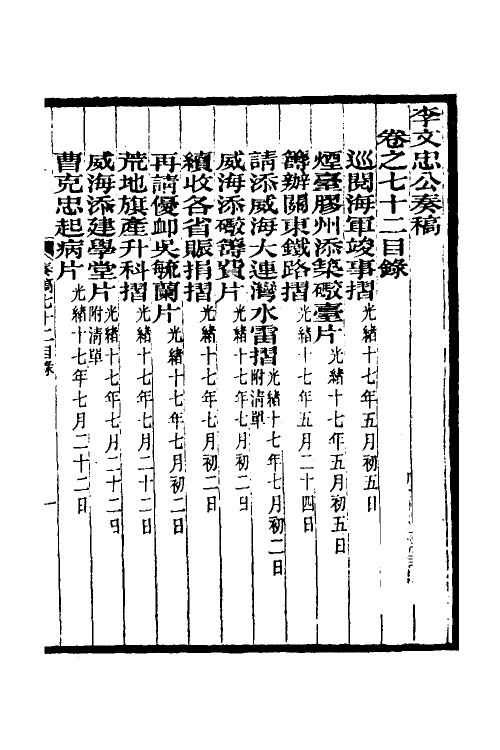 李文忠公奏稿
卷之七十二目錄
巡閱海軍竣事摺光緒十七年五月初五日
煙臺膠州添築礮臺片光緒十七年五月初五日
籌辦關東鐵路摺光緒十七年五月二十四日
請添威海大連灣水雷摺光緒十七年七月初二日附清單
威海添礮籌費片光緒十七年七月初二日
續收各省賑捐摺光緒十七年七月初二日
再請優卹吳毓蘭片光緒十七年七月初二日
荒地旗產升科摺光緒十七年七月二十二日
威海添建學堂片光緒十七年七月二十二日附清單
曹克忠起病片光緒十七年七月二十二日
奏稿七十二目錄
一